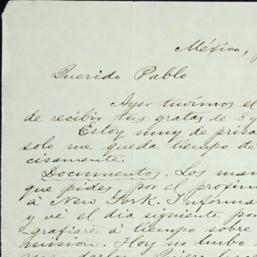 México,
Querido Pablo
Ayer tuvimos el
de recibir tus gratas de 8 y
Estoy muy de prisa
solo me queda tiempo de
cisamente.
Documentos. Los man
que pides, por el próxim
á New York. Informa
y vé el dia siguiente por
grafiaré á tiempo sobre
misión. Hoy no hubo